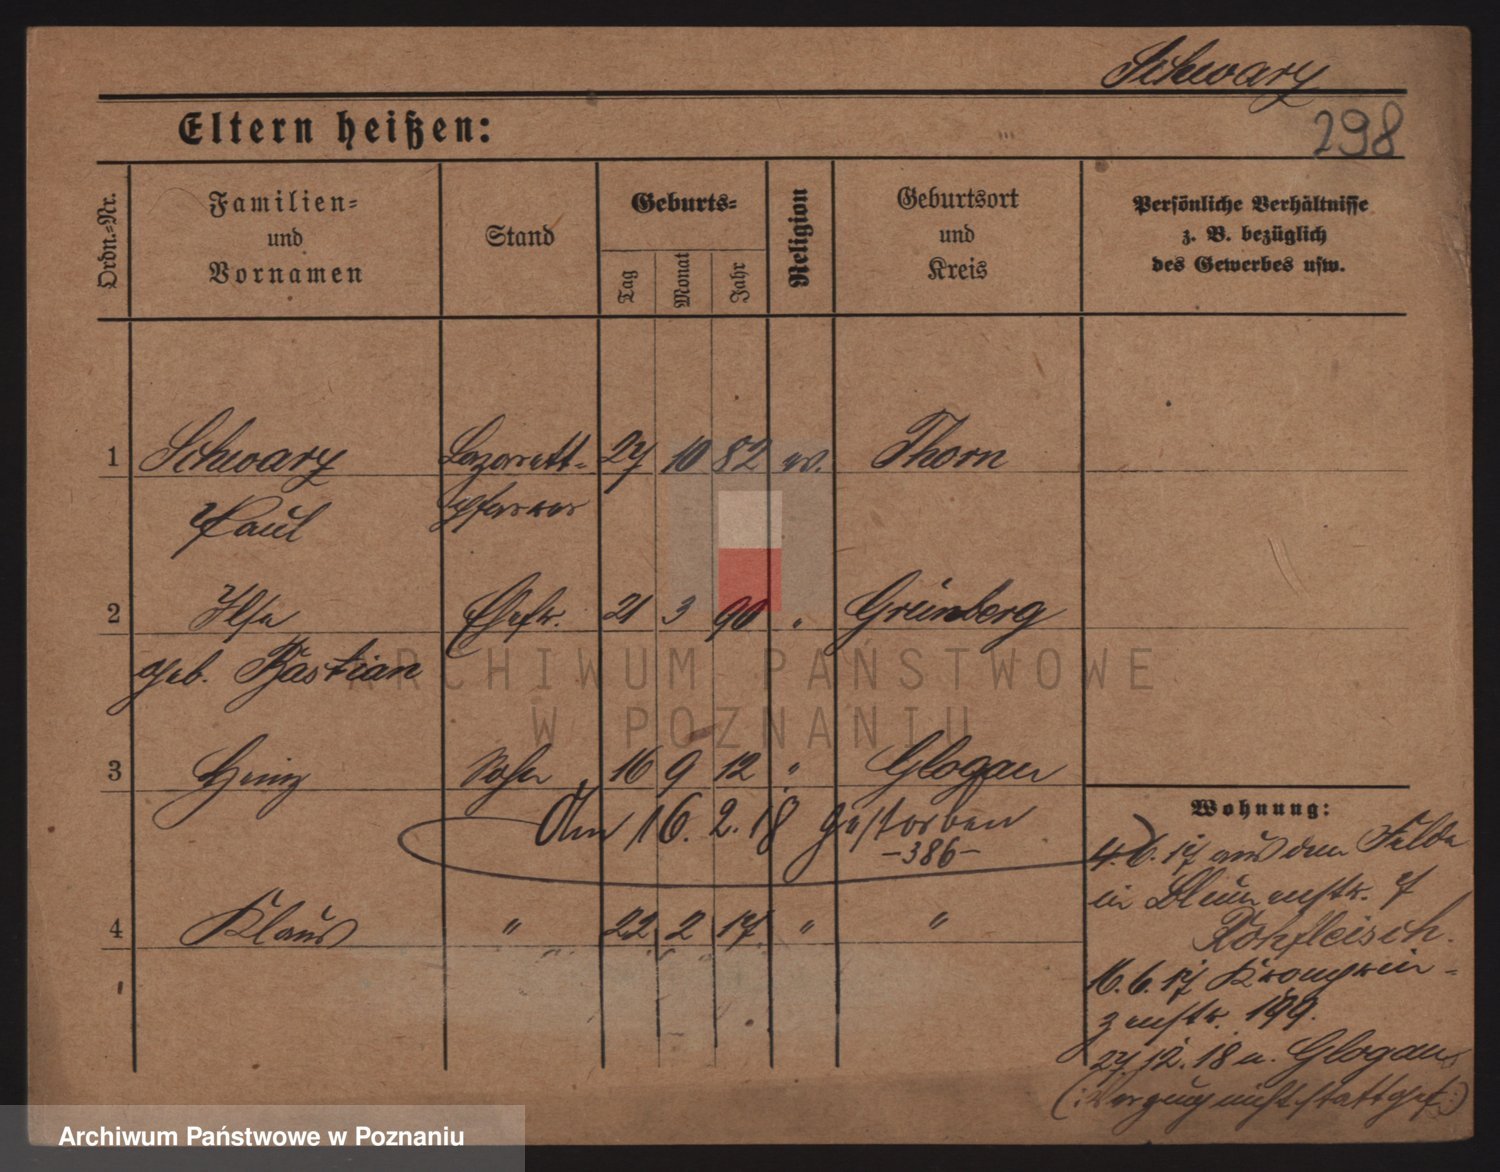 Schwarz
298
Eltern heißen:
Ordn.-Nr.
Familien-
und
Vornamen
Stand
Geburts-
Tag
Monat
Jahr
Religion
Geburtsort
und
Kreis
Persönliche Verhältnisse
z. B. bezüglich
des Gewerbes usw.
1 Schwarz Lazarett- 27 10 82 ev. Thorn
Paul pfarrer
2 Ilse Ehefr. 21 3 90 " Grünberg
geb. Bastian
3 Heinz Sohn 16 9 12 " Glogau
Am 16. 2. 18 gestorben
-386-
4 Klaus " 22 2 17 " "
Wohnung:
4. 6. 17 aus dem Felde
in Blumenstr. 7
Rohfleisch.
16. 6. 17 Kronprin-
zenstr. 199.
27. 12. 18 n. Glogau
(: Verzug nicht stattgef. :)
ARCHIWUM PAŃSTWOWE
W POZNANIU
Archiwum Państwowe w Poznaniu